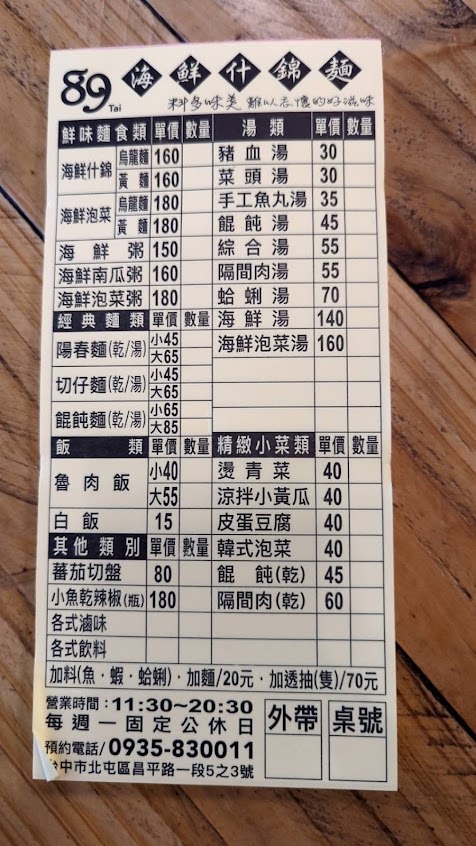 89 Tai 海鮮什錦麵
料多味美 難以忘懷的好滋味
鮮味麵食類 單價 數量
海鮮什錦 烏龍麵 160
黃麵 160
海鮮泡菜 烏龍麵 180
黃麵 180
海鮮粥 150
海鮮南瓜粥 160
海鮮泡菜粥 180
經典麵類 單價 數量
陽春麵(乾/湯) 小45
大65
切仔麵(乾/湯) 小45
大65
餛飩麵(乾/湯) 小65
大85
飯類 單價 數量
魯肉飯 小40
大55
白飯 15
其他類別 單價 數量
蕃茄切盤 80
小魚乾辣椒(瓶) 180
各式滷味
各式飲料
湯類 單價 數量
豬血湯 30
菜頭湯 30
手工魚丸湯 35
餛飩湯 45
綜合湯 55
隔間肉湯 55
蛤蜊湯 70
海鮮湯 140
海鮮泡菜湯 160
精緻小菜類 單價 數量
燙青菜 40
涼拌小黃瓜 40
皮蛋豆腐 40
韓式泡菜 40
餛飩(乾) 45
隔間肉(乾) 60
加料(魚·蝦·蛤蜊)·加麵/20元·加透抽(隻)/70元
營業時間:11:30~20:30
每週一固定公休日
預約電話/0935-830011
台中市北屯區昌平路一段5之3號
外帶 桌號